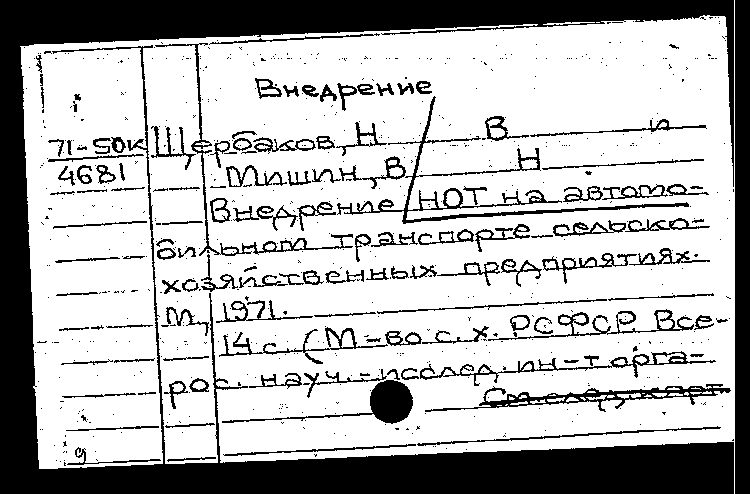 Внедрение
71-50К Щербаков, Н В и
4681 Мишин, В Н
Внедрение НОТ на автомо-
бильном транспорте сельско-
хозяйственных предприятиях.
М, 1971.
14 с. (М-во с. х. РСФСР. Все-
рос. науч.-исслед. ин-т орга-
См. след. карт
9